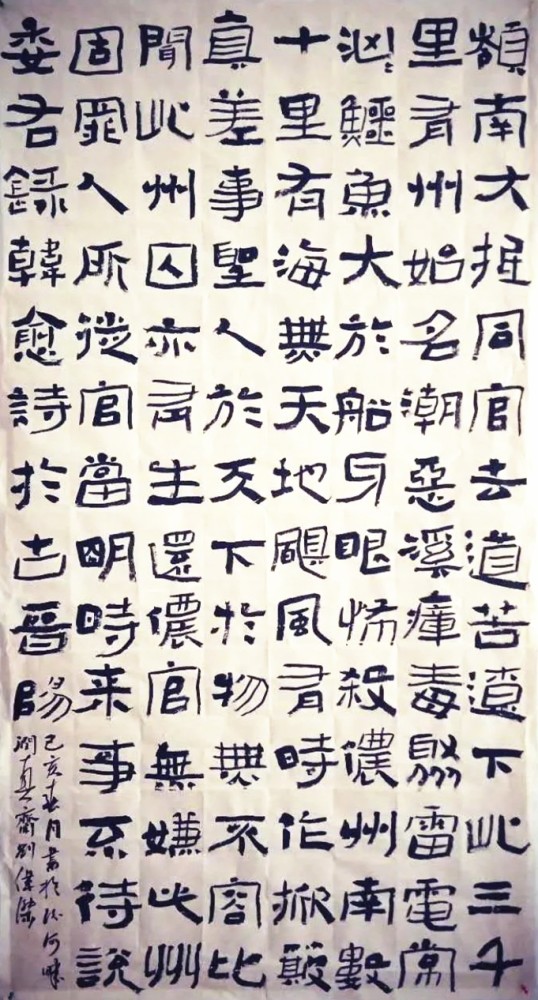 嶺南大抵同官去道苦遼下此三千
里有州始名潮惡溪瘴毒聚雷電常
汹〻鱷魚大於船牙眼怖殺儂州南數
十里有海無天地颶風有時作掀簸
真差事聖人於天下於物無不容比
聞此州囚亦有生還儂官無嫌此州
固罪人所徙官當明時来事不待說
委右錄韓愈詩於古晉陽
己亥春月書於汾河畔
真齋劉偉